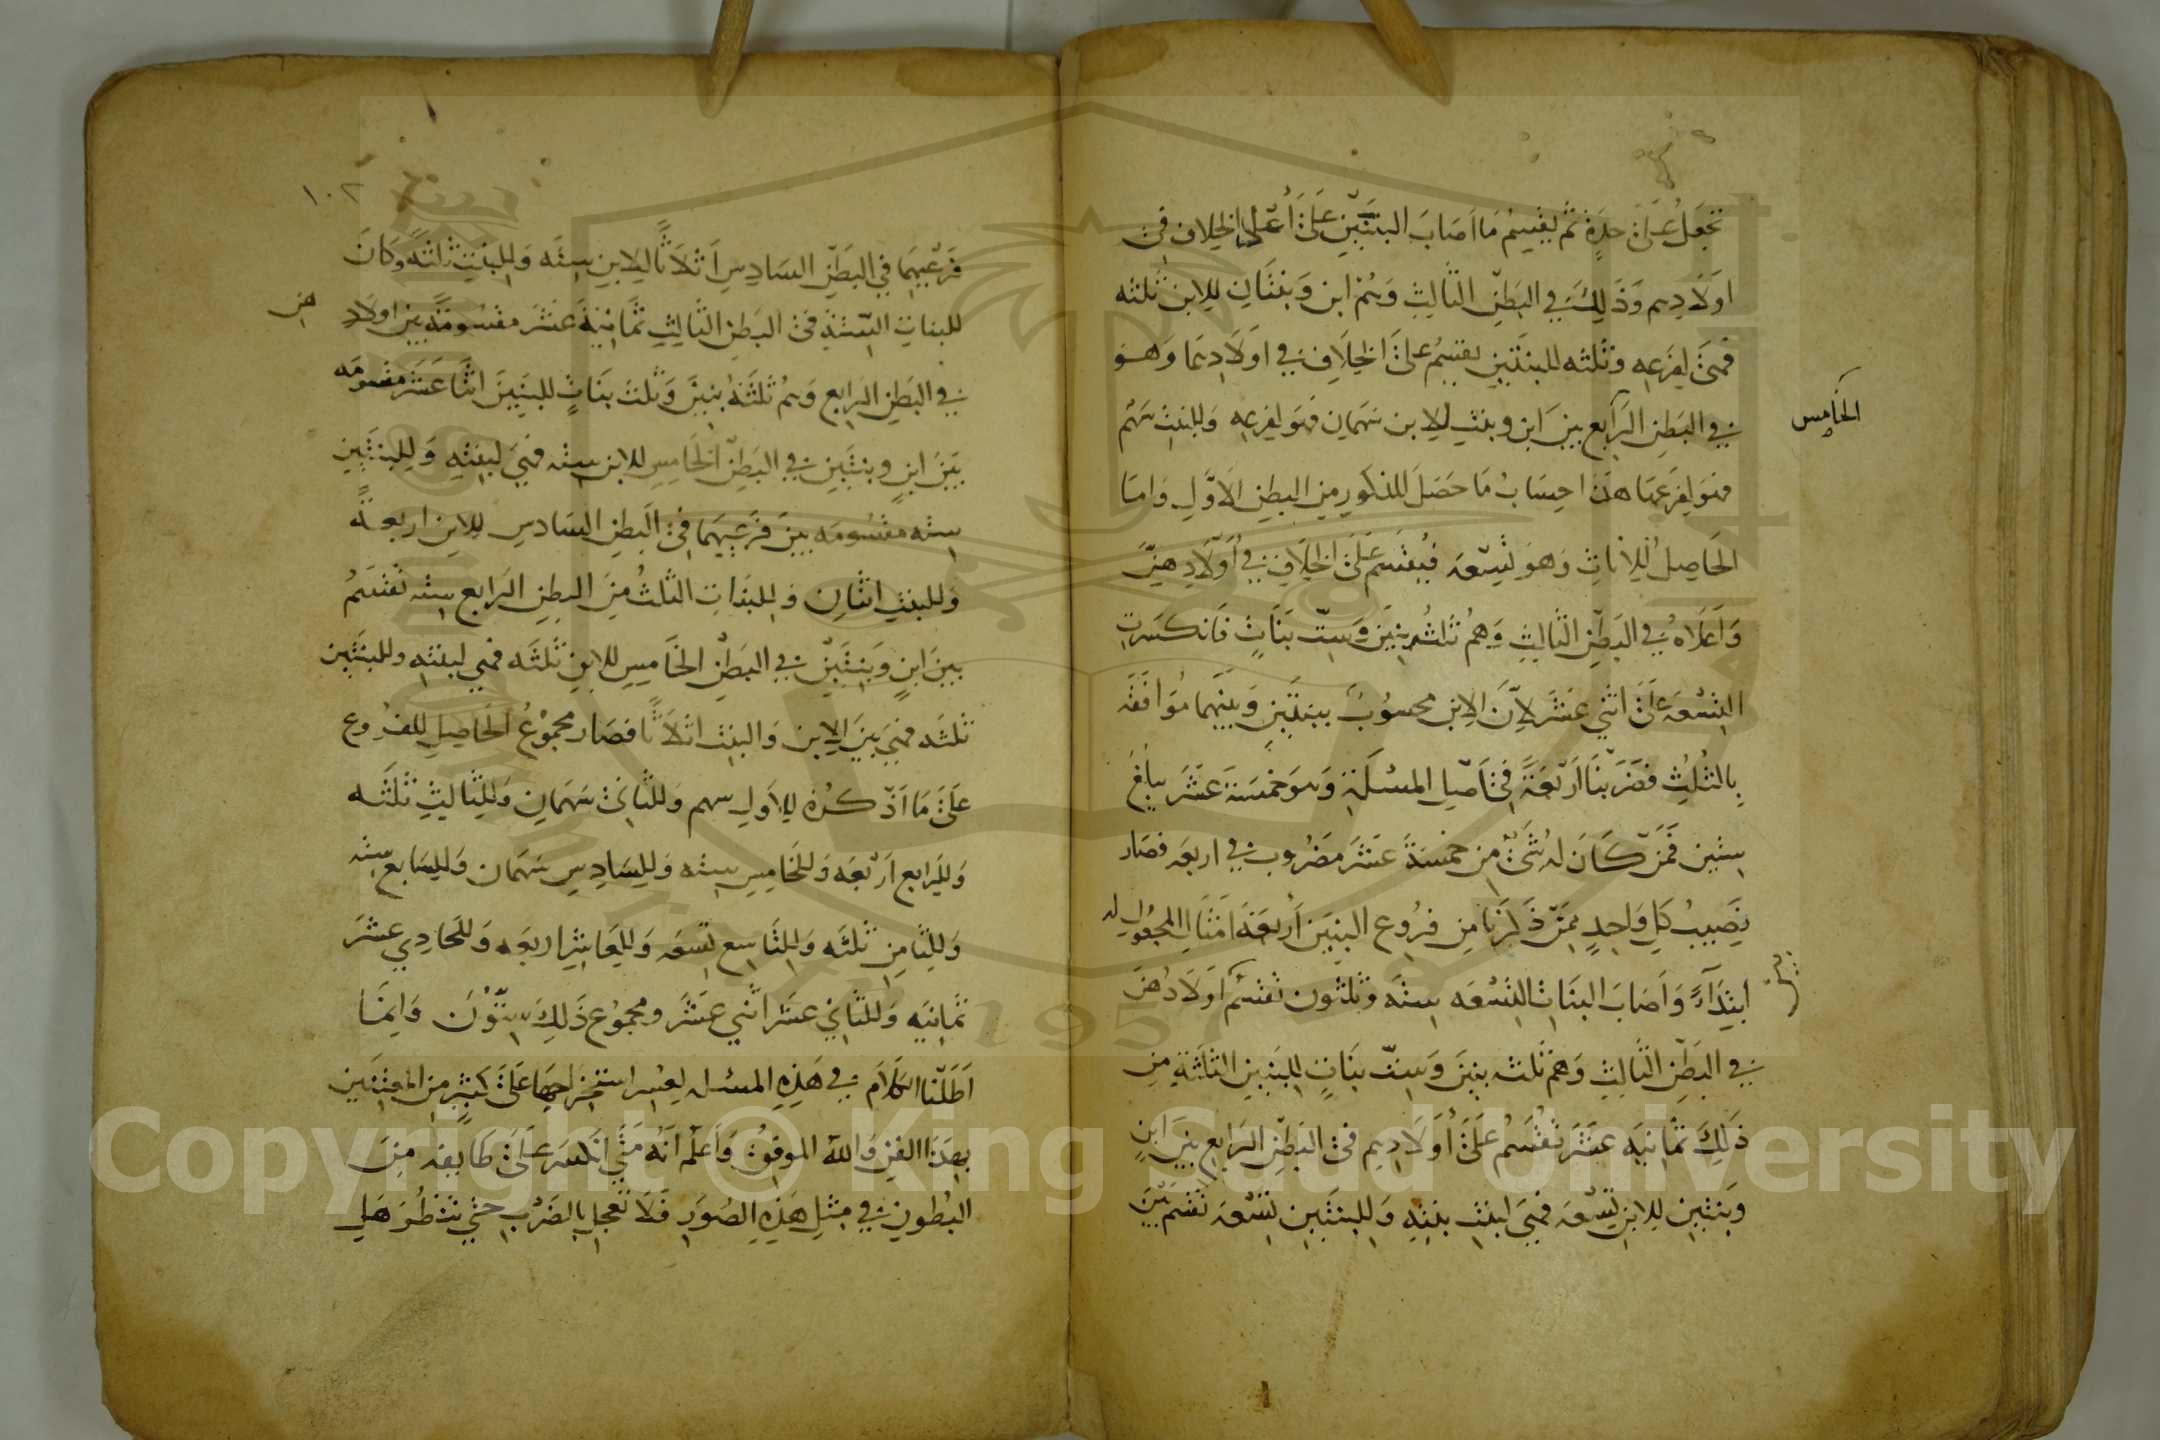 تجعل على حدة ثم يقسم ما اصاب البنتين على أعلى الخلاف في
اولادهم وذلك في البطن الثالث وهم ابن وبنتان للابن ثلثه
فهي لفرعه وثلثه للبنتين يقسم على الخلاف في اولادهما وهو
في البطن الرابع بين ابن وبنت للابن سهمان فهو لفرعه وللبنت سهم
الخامس
فهو لفرعها هذا حساب ما حصل للذكور من البطن الاول واما
الحاصل للاناث وهو تسعه فيقسم على الخلاف في أولادهن
وأعلاه في البطن الثالث وهم ثلثه بنين وست بنات فانكسرت
التسعه على اثني عشر لأن الابن محسوب ببنتين وبينهما موافقه
بالثلث فضربنا أربعة في اصل المسئلة وهو خمسة عشر يبلغ
ستين فمن كان له شئ من خمسة عشر مضروب في اربعه فصار
نصيب كل واحد ممن ذكرنا من فروع البنين أربعة امثال المجعول له
ابتداء واصاب البنات التسعه سته وثلثون تقسم اولادهن
في البطن الثالث وهم ثلث بنين وست بنات للبنين الثلثة من
ذلك ثمانيه عشر تقسم على أولادهم في البطن الرابع بين ابن
وبنتين للابن تسعه فهي لبنت بنته وللبنتين تسعه تقسم بين
١٠٢
فرعيهما في البطن السادس اثلاثا للابن سته وللبنت ثلثه وكان
للبنات الستة في البطن الثالث ثمانية عشر مقسومة بين اولاد
هن
في البطن الرابع وهم ثلثة بنين وثلث بنات للبنين اثنا عشر مقسومه
بين ابن وبنتين في البطن الخامس للابن سته فهي لبنته وللبنتين
سته مقسومه بين فرعيهما في البطن السادس للابن اربعة
وللبنت اثنان وللبنات الثلث من البطن الرابع سته تقسم
بين ابن وبنتين في البطن الخامس للابن ثلثه فهي لبنته وللبنتين
ثلثه فهي بين الابن والبنت اثلاثا فصار مجموع الحاصل للفروع
على ما اذكره للاول سهم وللثاني سهمان وللثالث ثلثه
وللرابع أربعه وللخامس سته وللسادس سهمان وللسابع سته
وللثامن ثلثه وللتاسع تسعه وللعاشر اربعه وللحادي عشر
ثمانيه وللثاني عشر اثني عشر ومجموع ذلك ستون وايما
اطلنا الكلام في هذه المسئله لعسر استخراجها على كثير من المعتنين
بهذا الفن والله الموفق واعلم أنه متى انكسر على طايفه من
البطون في مثل هذه الصور فلا تعجل بالضرب حتى تنظر هل